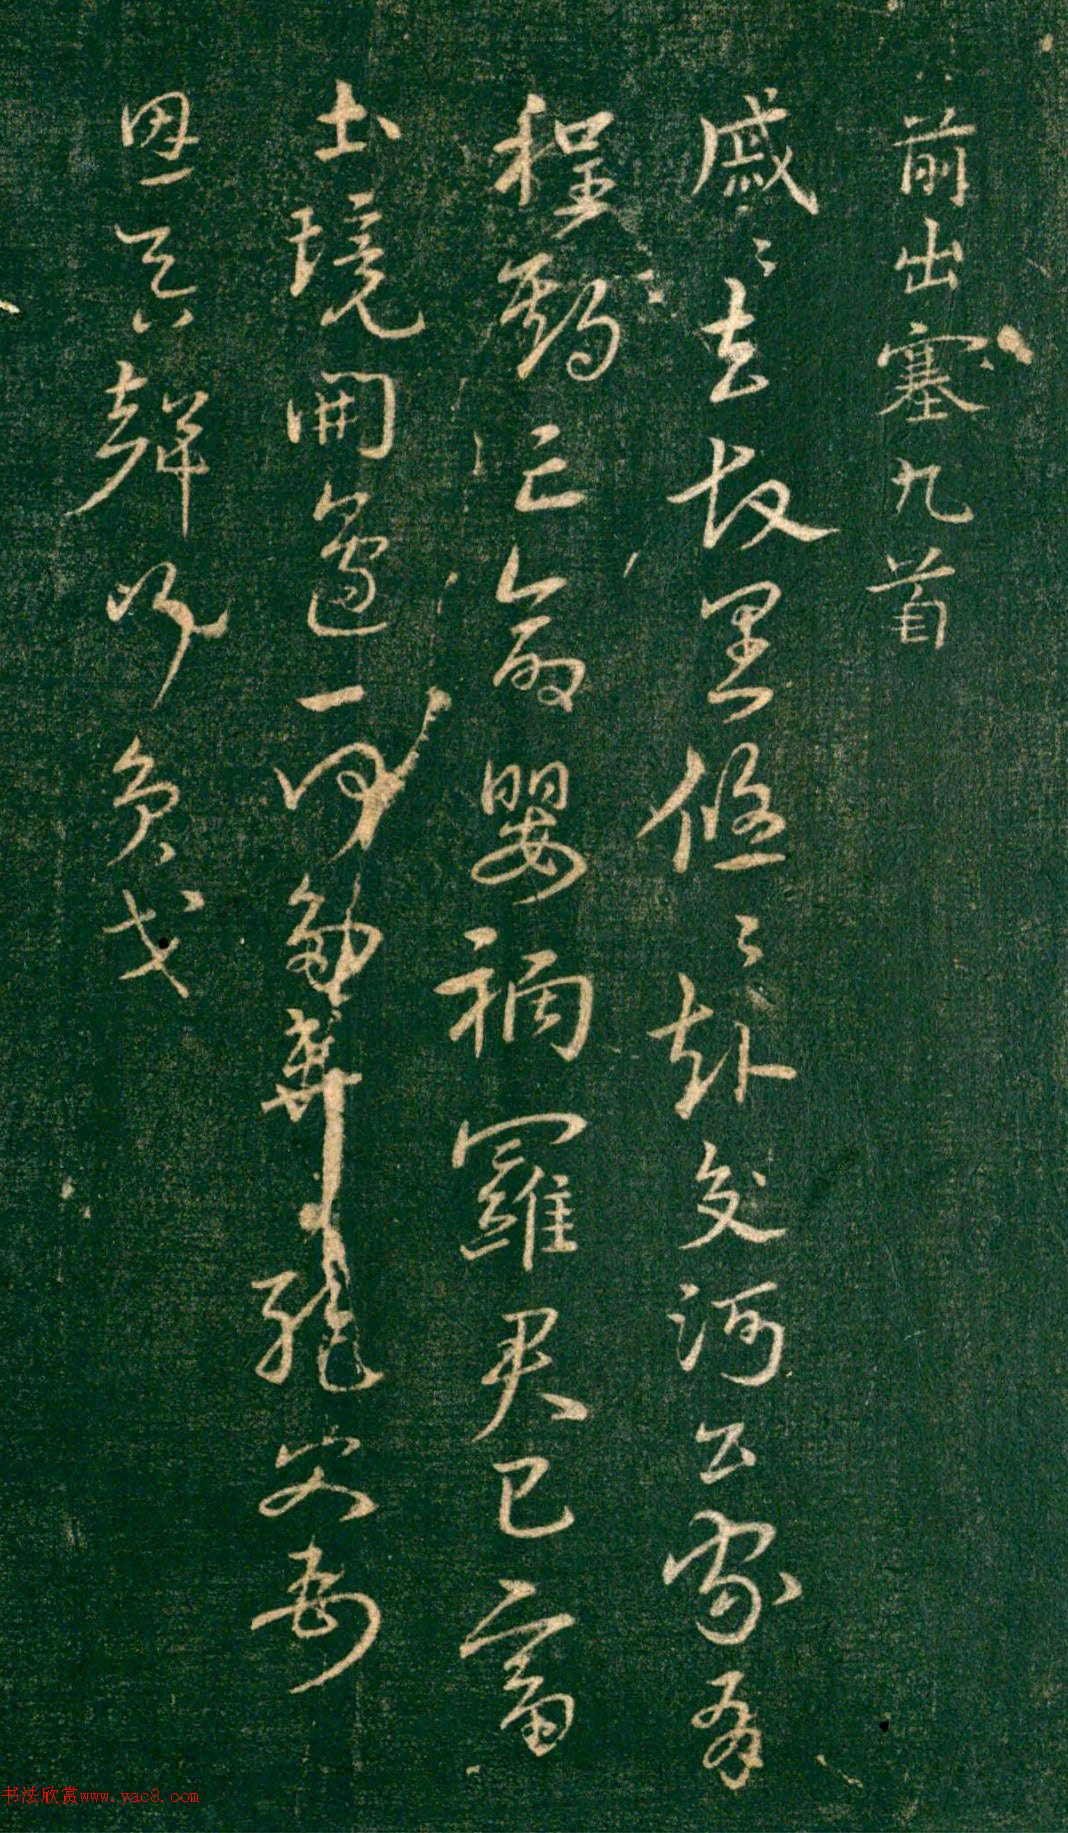 前出塞九首
戚〻去故里悠〻赴交河公家有
程期亡命嬰禍羅君已富
土境開邊一何多棄絕父母
恩吞聲行負戈
书法欣赏www.yac8.com